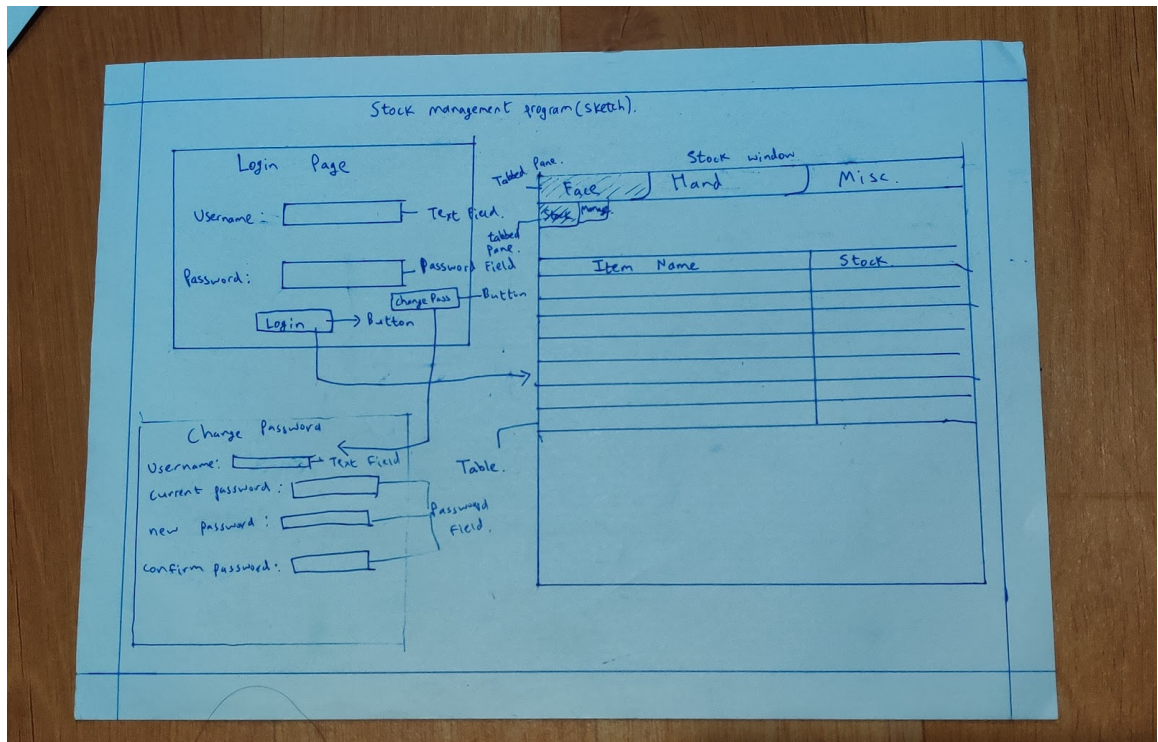 Stock management program(sketch).
Login Page
Username:
Text Field.
Password:
Password Field
Change Pass
Button
Login
Button
Change Password
Username:
Text Field
current password:
new password:
confirm password:
Password
Field.
Stock window
Tabbed Pane.
Face
Hand
Misc.
Stock
Manage
tabbed
Pane.
Item Name
Stock
Table.